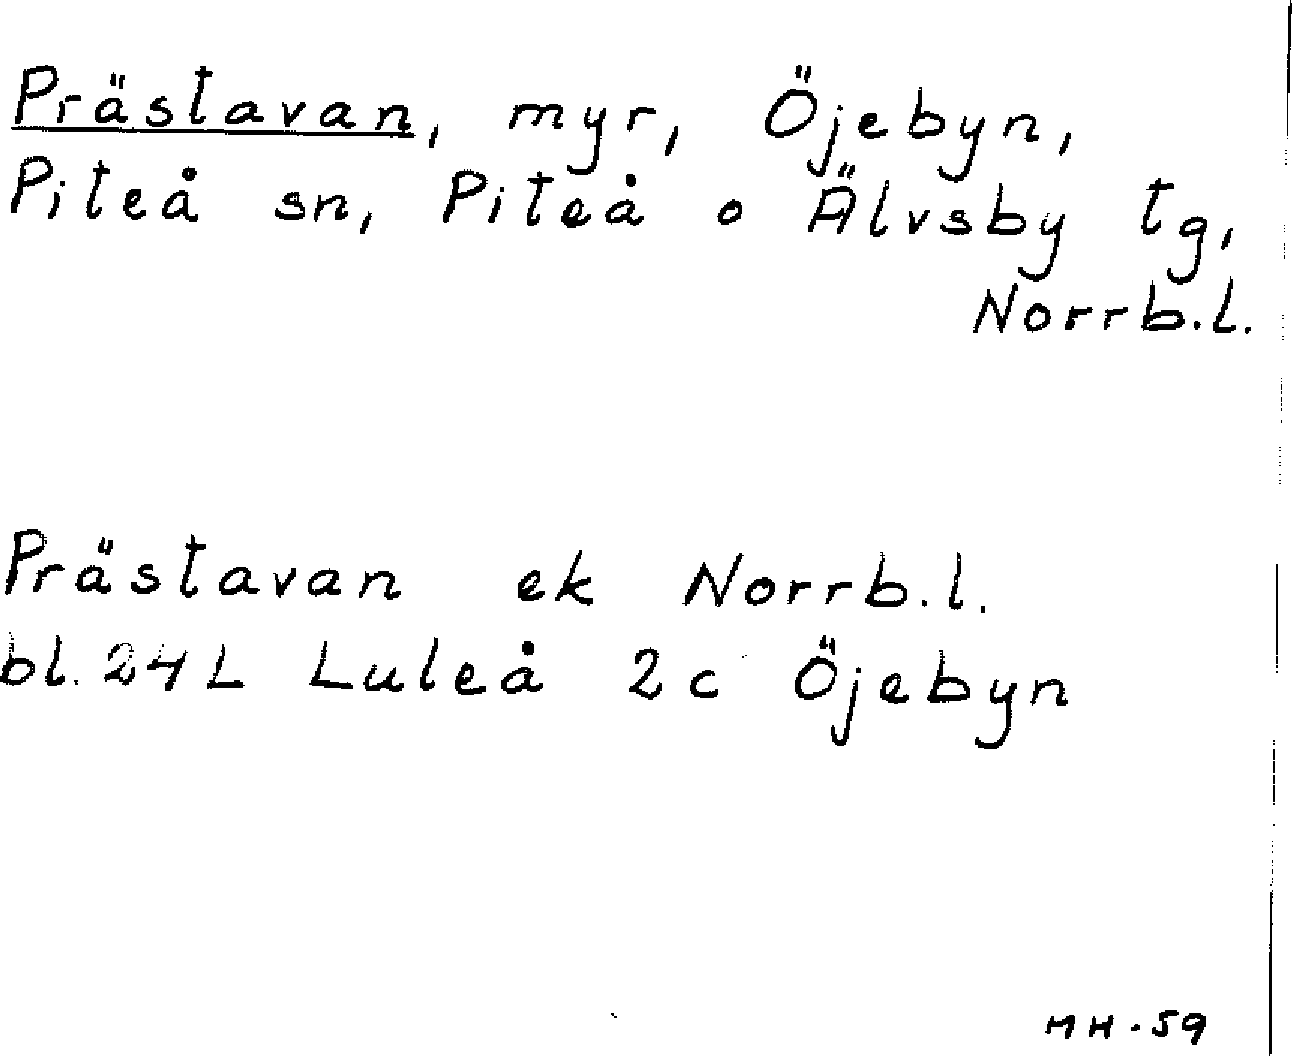 Prästavan, myr, Öjebyn,
Piteå sn, Piteå o Älvsby tg,
Norrb.l.
Prästavan ek Norrb.l.
bl. 24L Luleå 2c Öjebyn
MH.59